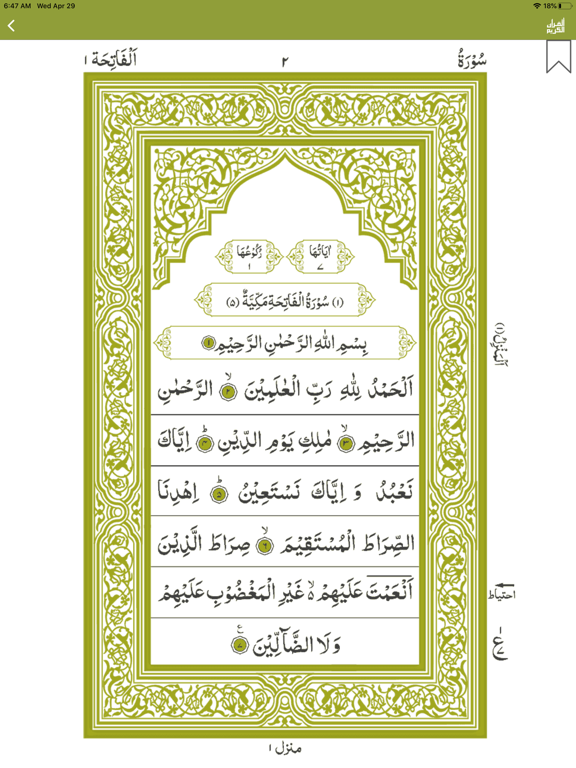 6:47 AM Wed Apr 29 18%
القرآن الكريم
سُوْرَةُ ٢ اَلْفَاتِحَة ١
اٰيَاتُهَا ٧ رُكُوْعُهَا ١
(١) سُوْرَةُ الْفَاتِحَةِ مَكِّيَّةٌ (٥)
بِسْمِ اللهِ الرَّحْمٰنِ الرَّحِيْمِ ١
اَلْحَمْدُ لِلّٰهِ رَبِّ الْعٰلَمِيْنَ ۙ ٢ الرَّحْمٰنِ
الرَّحِيْمِ ۙ ٣ مٰلِكِ يَوْمِ الدِّيْنِ ؕ ٤ اِيَّاكَ
نَعْبُدُ وَ اِيَّاكَ نَسْتَعِيْنُ ؕ ٥ اِهْدِنَا
الصِّرَاطَ الْمُسْتَقِيْمَ ۙ ٦ صِرَاطَ الَّذِيْنَ
اَنْعَمْتَ عَلَيْهِمْ ۙ۬ غَيْرِ الْمَغْضُوْبِ عَلَيْهِمْ
وَلَا الضَّآلِّيْنَ ٧ ع
اَلْمَنْزِلُ (١)
احتیاط
ع ٧
منزل ١